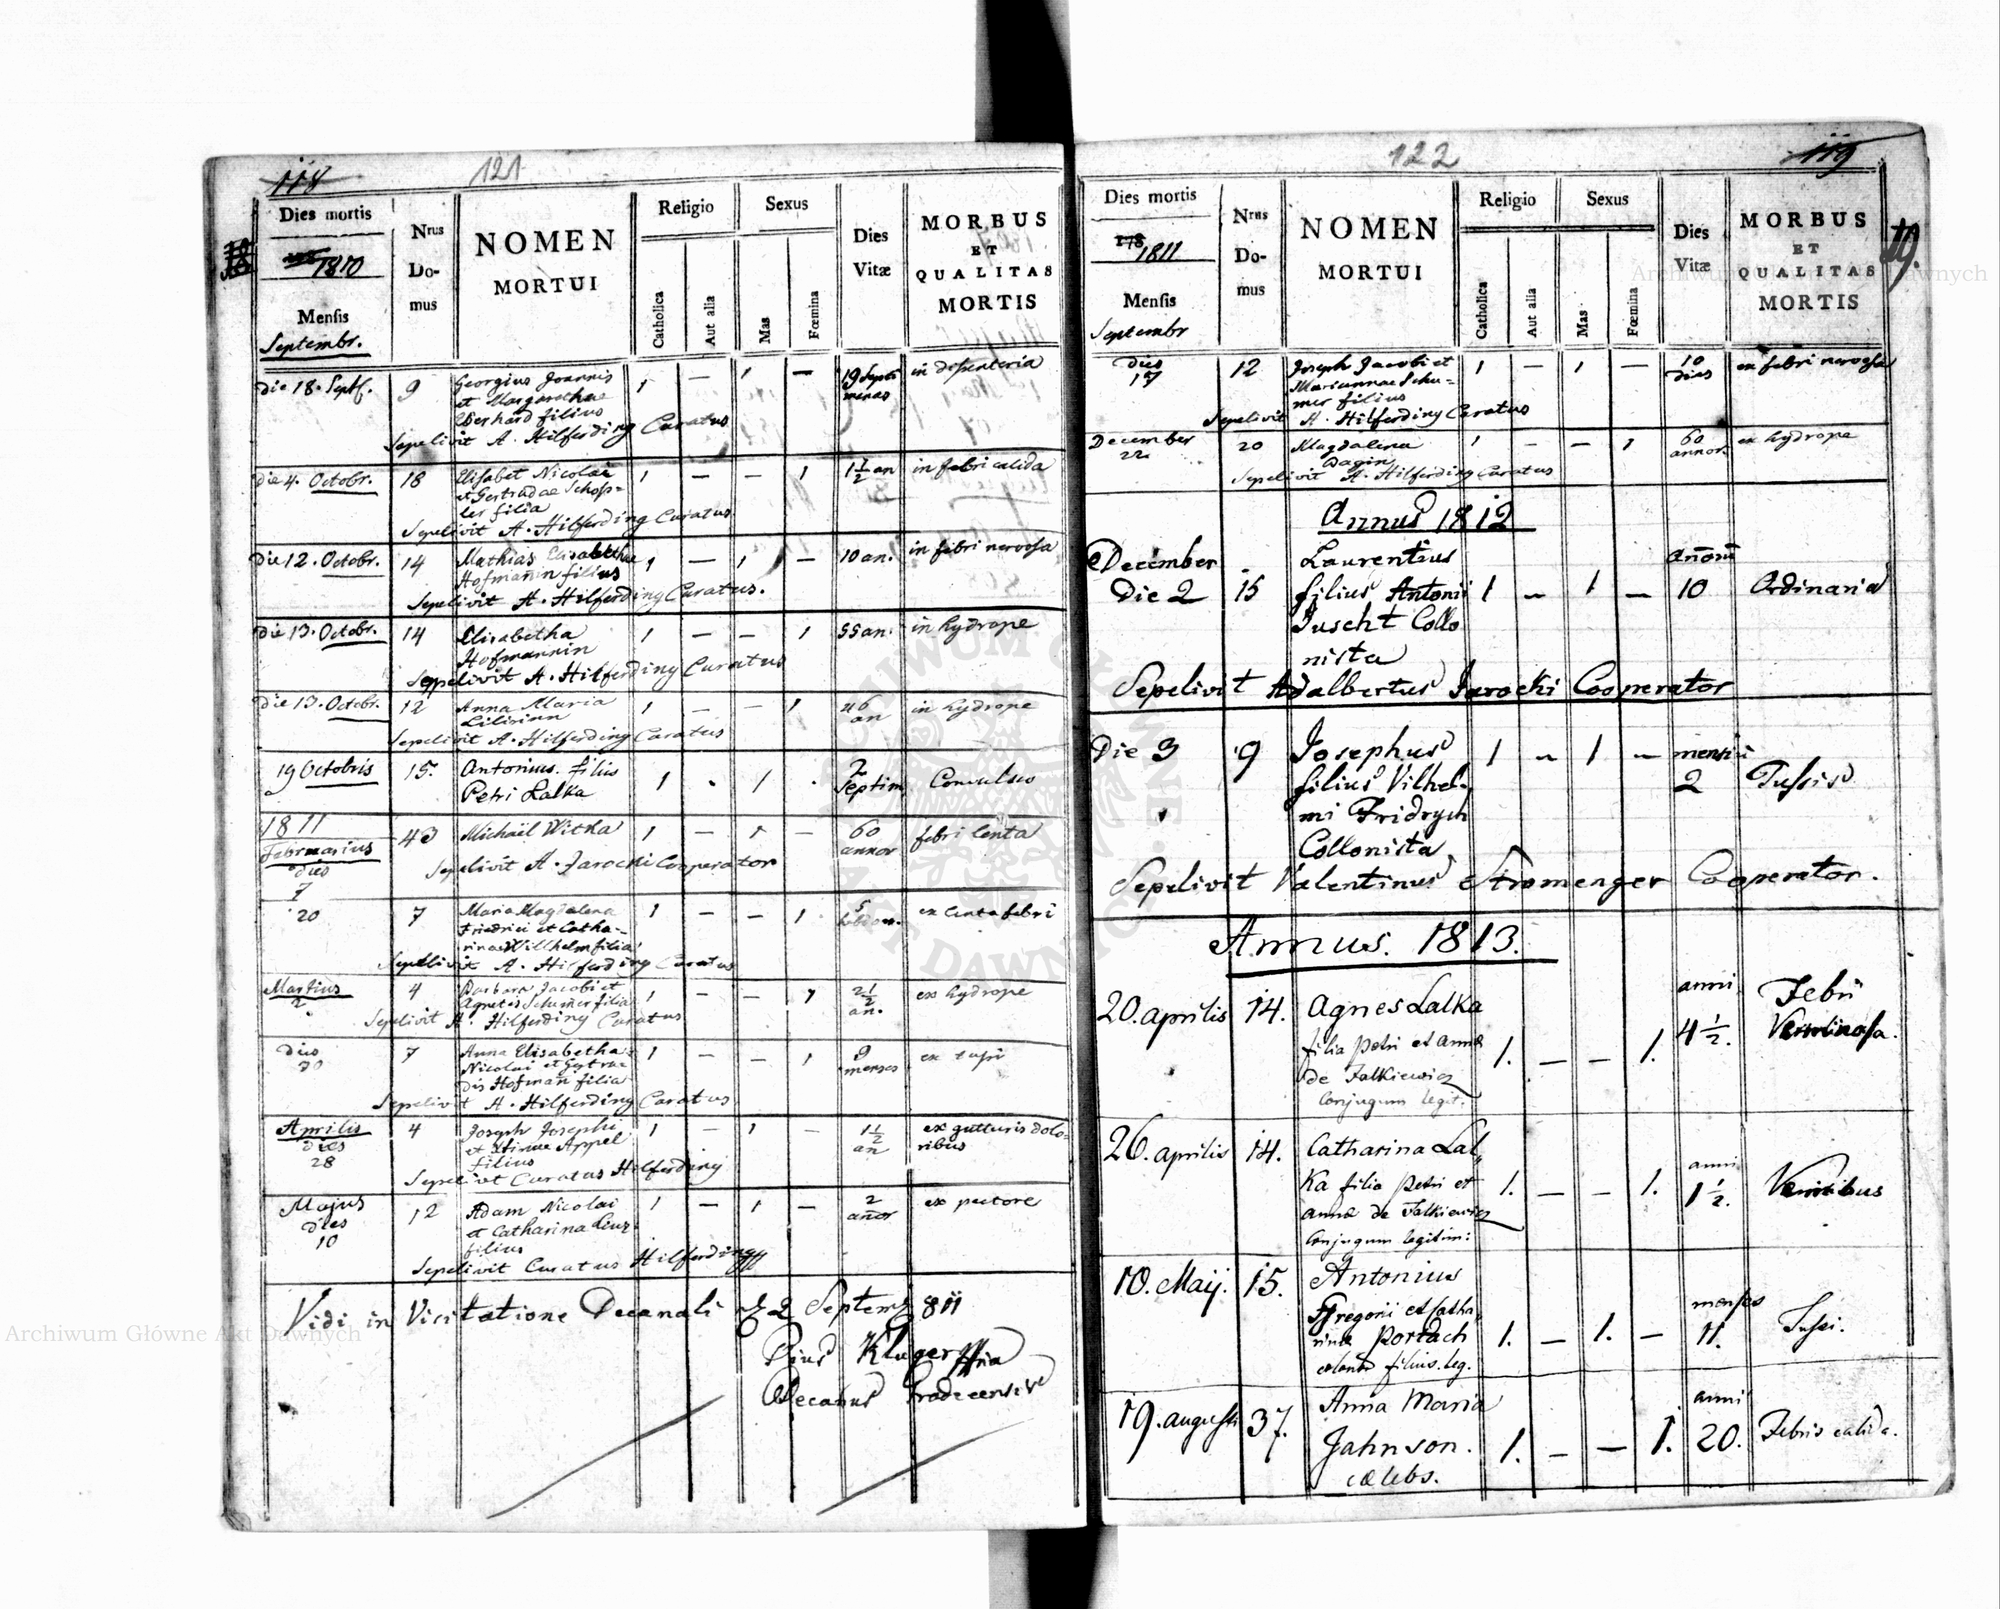 118
121
Dies mortis
1810
Mensis
Septembr.
Nrus
Do-
mus
NOMEN
MORTUI
Religio
Catholica
Aut alia
Sexus
Mas
Fœmina
Dies
Vitæ
MORBUS
ET
QUALITAS
MORTIS
die 18. Sept. 9 Georgius Joannis 1 — 1 — 19 Septi in dysenteria
et Margarethae manas
Eberhard filius
Sepelivit A. Hilferding Curatus
Die 4. Octobr. 18 Elisabet Nicolai 1 — — 1 1 1/2 an in febri calida
et Gertrudae Schoss=
ler filia
Sepelivit A. Hilferding Curatus
Die 12. Octobr. 14 Mathias Elisabetha 1 — 1 — 10 an. in febri nervosa
Hofmann filius
Sepelivit A. Hilferding Curatus.
Die 13. Octobr. 14 Elisabetha 1 — — 1 55 an. in hydrope
Hofmannin
Sepelivit A. Hilferding Curatus
die 13. Octobr. 12 Anna Maria 1 — — 1 46 in hydrope
an
Sepelivit A. Hilferding Curatus
19 Octobris 15. Antonius filius 1 . 1 . 2 Convulsio
Petri Lalka Septim
1811
Februarius 43 Michaël Witka 1 — 1 — 60 febri lenta
dies annor
7 Sepelivit A. Jarocki Cooperator
20 7 Maria Magdalena 1 — — 1 5 ex lenta febri
Friedrici et Catha-
rinae Willhelm filia
Sepelivit A. Hilferding Curatus
Martius 4 Barbara Jacobi et 1 — — 1 2 1/2 ex hydrope
2 Agnetis Schumer filia an.
Sepelivit A. Hilferding Curatus
dies 7 Anna Elisabetha 1 — — 1 9 ex tussi
30 Nicolai et Gertru menses
dis Hofman filia
Sepelivit A. Hilferding Curatus
Aprilis 4 Joseph Josephi 1 — 1 — 1 1/2 ex gutturis dolo-
dies et Appel an ribus
28 filius
Sepelivit Curatus Hilferding
Majus 12 Adam Nicolai 1 — 1 — 2 ex pectore
dies et Catharina añor
10 filius
Sepelivit Curatus Hilferding
Vidi in Visitatione Decanali 2 Septemb 811
Pius Kluger
Decanus Grodecensis
122
119
Dies mortis
1811
Mensis
Septembr
Nrus
Do-
mus
NOMEN
MORTUI
Religio
Catholica
Aut alia
Sexus
Mas
Fœmina
Dies
Vitæ
MORBUS
ET
QUALITAS
MORTIS
19.
dies 12 Joseph Jacobi et 1 — 1 — 10 ex febri nervosa
17 Mariannae Schu= dies
mer filius
Sepelivit A. Hilferding Curatus
December 20 Magdalena 1 — — 1 60 ex hydrope
22 annor.
Sepelivit A. Hilferding Curatus
Annus 1812
December Laurentius
Die 2 15 filius Antonii 1 — 1 — 10 Ordinaria
Juscht Collo
nista
Sepelivit Adalbertus Jarocki Cooperator
Die 3 9 Josephus 1 — 1 — mensiu
filius Vilhel- 2 Tussis
mi Fridrych
Collonista
Sepelivit Valentinus Stromenger Cooperator.
Annus. 1813.
20. aprilis 14. Agnes Lalka anni Febri
filia Petri et Annæ 1. — — 1. 4 1/2. Verminosa.
de Falkiewicz
Conjugum legit.
26. aprilis 14. Catharina Lal„ anni
Ka filia Petri et 1. — — 1. 1 1/2. Vermibus
annæ de Falkiewicz
Conjugum legitim:
10. Maij. 15. Antonius menses
Gregorii et Catha 1. — 1. — 11. Tussi.
rinæ Portach
filius. leg.
19. augusti 37. Anna Maria anni
Jahnson. 1. — — 1. 20. Febris calida.
cælebs.
Archiwum Główne Akt Dawnych